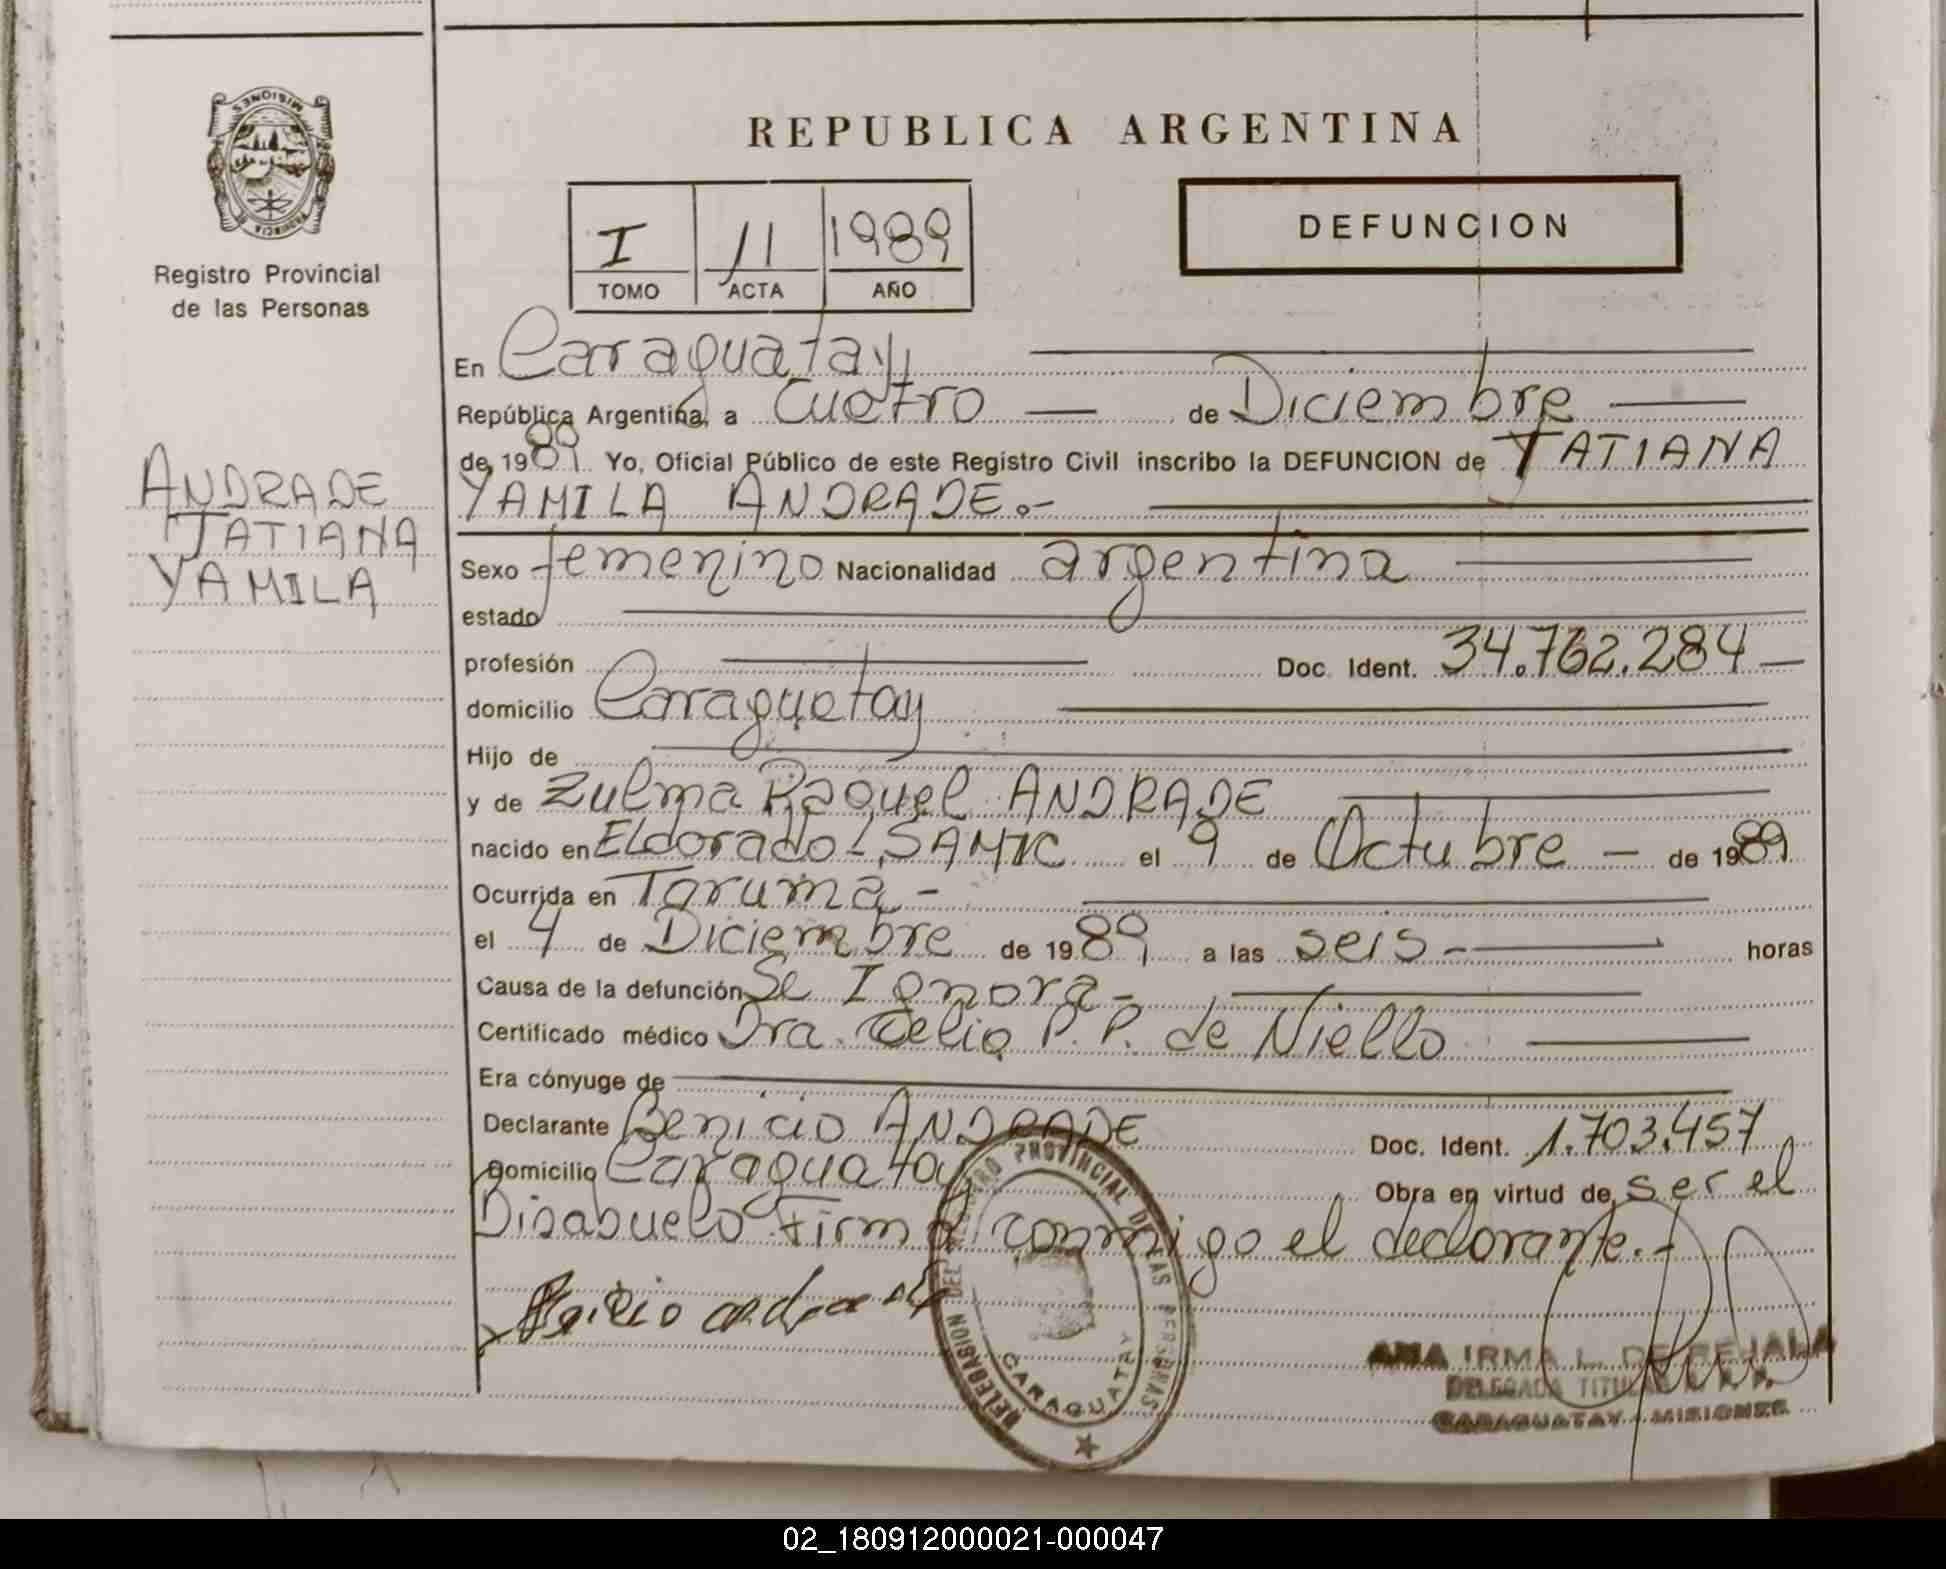 MISIONES
PROVINCIA
Registro Provincial
de las Personas
ANDRADE
TATIANA
YAMILA
REPUBLICA ARGENTINA
I 11 1989
TOMO ACTA AÑO
DEFUNCION
En Caraguatay
República Argentina, a Cuatro — de Diciembre —
de 1989 Yo, Oficial Público de este Registro Civil inscribo la DEFUNCION de TATIANA
YAMILA ANDRADE.-
Sexo femenino Nacionalidad argentina
estado
profesión Doc. Ident. 34.762.284 —
domicilio Caraguatay
Hijo de
y de Zulma Raquel ANDRADE
nacido en Eldorado, SAMIC el 9 de Octubre — de 1989
Ocurrida en Taruma -
el 4 de Diciembre de 1989 a las seis - horas
Causa de la defunción Se Ignora -
Certificado médico Dra. Celia P. P. de Niello
Era cónyuge de
Declarante Benicio ANDRADE Doc. Ident. 1.703.457
Domicilio Caraguatay Obra en virtud de ser el
Bisabuelo Firma conmigo el declarante.-
DELEGACION DEL REGISTRO PROVINCIAL DE LAS PERSONAS
CARAGUATAY
ANA IRMA L. DE REJALA
DELEGADA TITULAR
CARAGUATAY - MISIONES
02_180912000021-000047